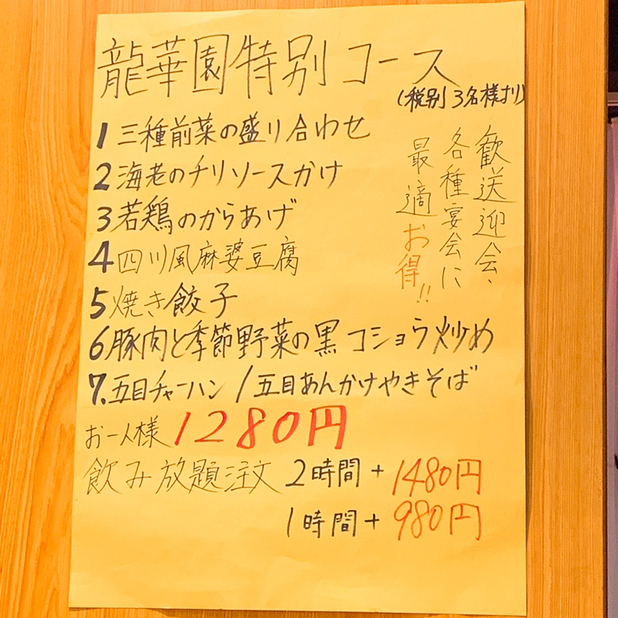 龍華園特別コース
(税別 3名様より)
歓送迎会、
各種宴会に
最適お得!!
1 三種前菜の盛り合わせ
2 海老のチリソースかけ
3 若鶏のからあげ
4 四川風麻婆豆腐
5 焼き餃子
6 豚肉と季節野菜の黒コショウ炒め
7. 五目チャーハン / 五目あんかけやきそば
お一人様 1280円
飲み放題注文 2時間 + 1480円
1時間 + 980円